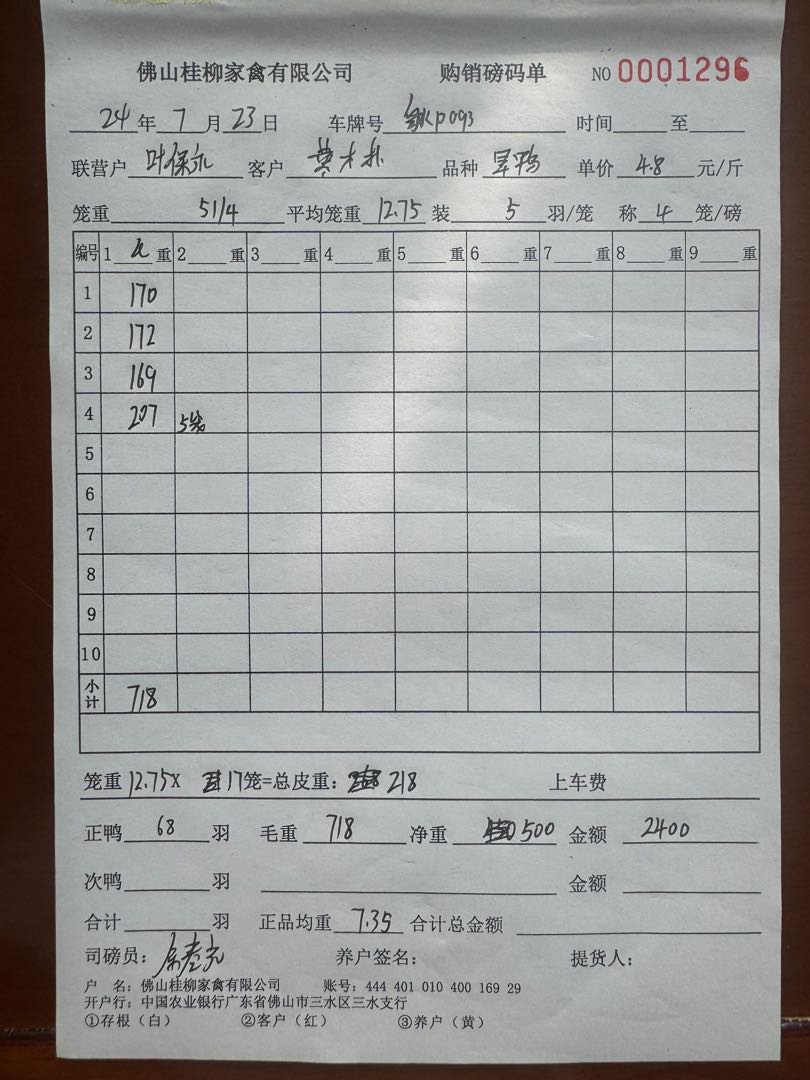 佛山桂柳家禽有限公司 购销磅码单 NO 0001296
24 年 7 月 23 日 车牌号 KP093 时间 至
联营户 叶保永 客户 品种 旱鸭 单价 4.8 元/斤
笼重 51/4 平均笼重 12.75 装 5 羽/笼 称 4 笼/磅
编号 1 重 2 重 3 重 4 重 5 重 6 重 7 重 8 重 9 重
1 170
2 172
3 169
4 207 5笼
5
6
7
8
9
10
小计 718
笼重 12.75X 17笼=总皮重: 218 上车费
正鸭 68 羽 毛重 718 净重 500 金额 2400
次鸭 羽 金额
合计 羽 正品均重 7.35 合计总金额
司磅员: 养户签名: 提货人:
户 名: 佛山桂柳家禽有限公司 账号: 444 401 010 400 169 29
开户行: 中国农业银行广东省佛山市三水区三水支行
①存根(白) ②客户(红) ③养户(黄)